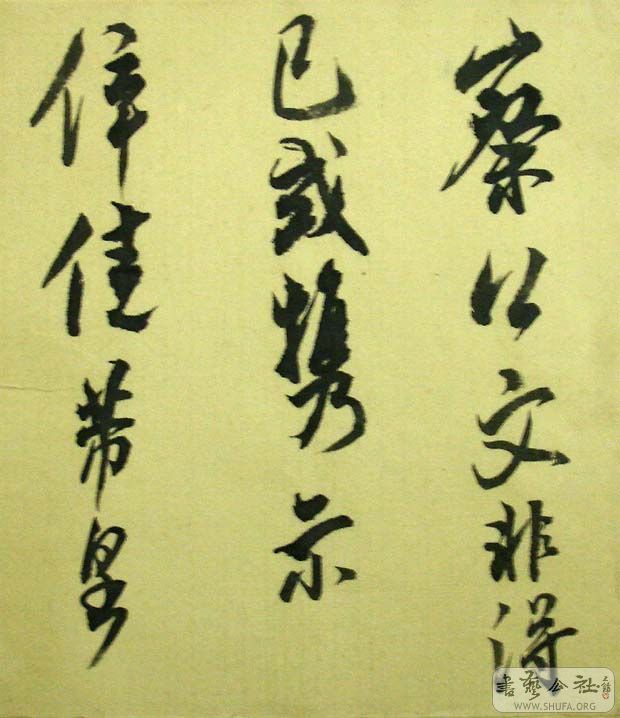 蔡公文非得
已或携示
倖佳芾皇
書藝公社
WWW.SHUFA.ORG